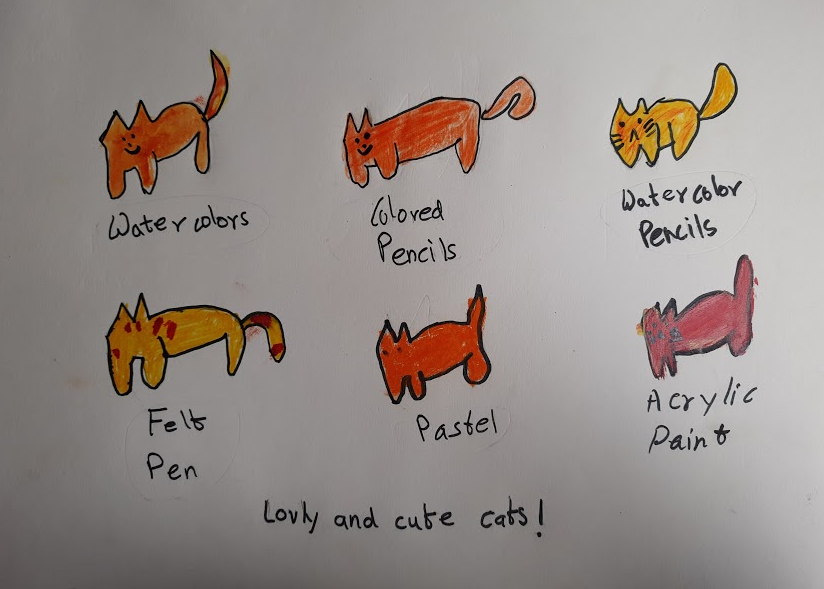 Watercolors
Colored
Pencils
Watercolor
Pencils
Felt
Pen
Pastel
Acrylic
Paint
Lovly and cute cats!